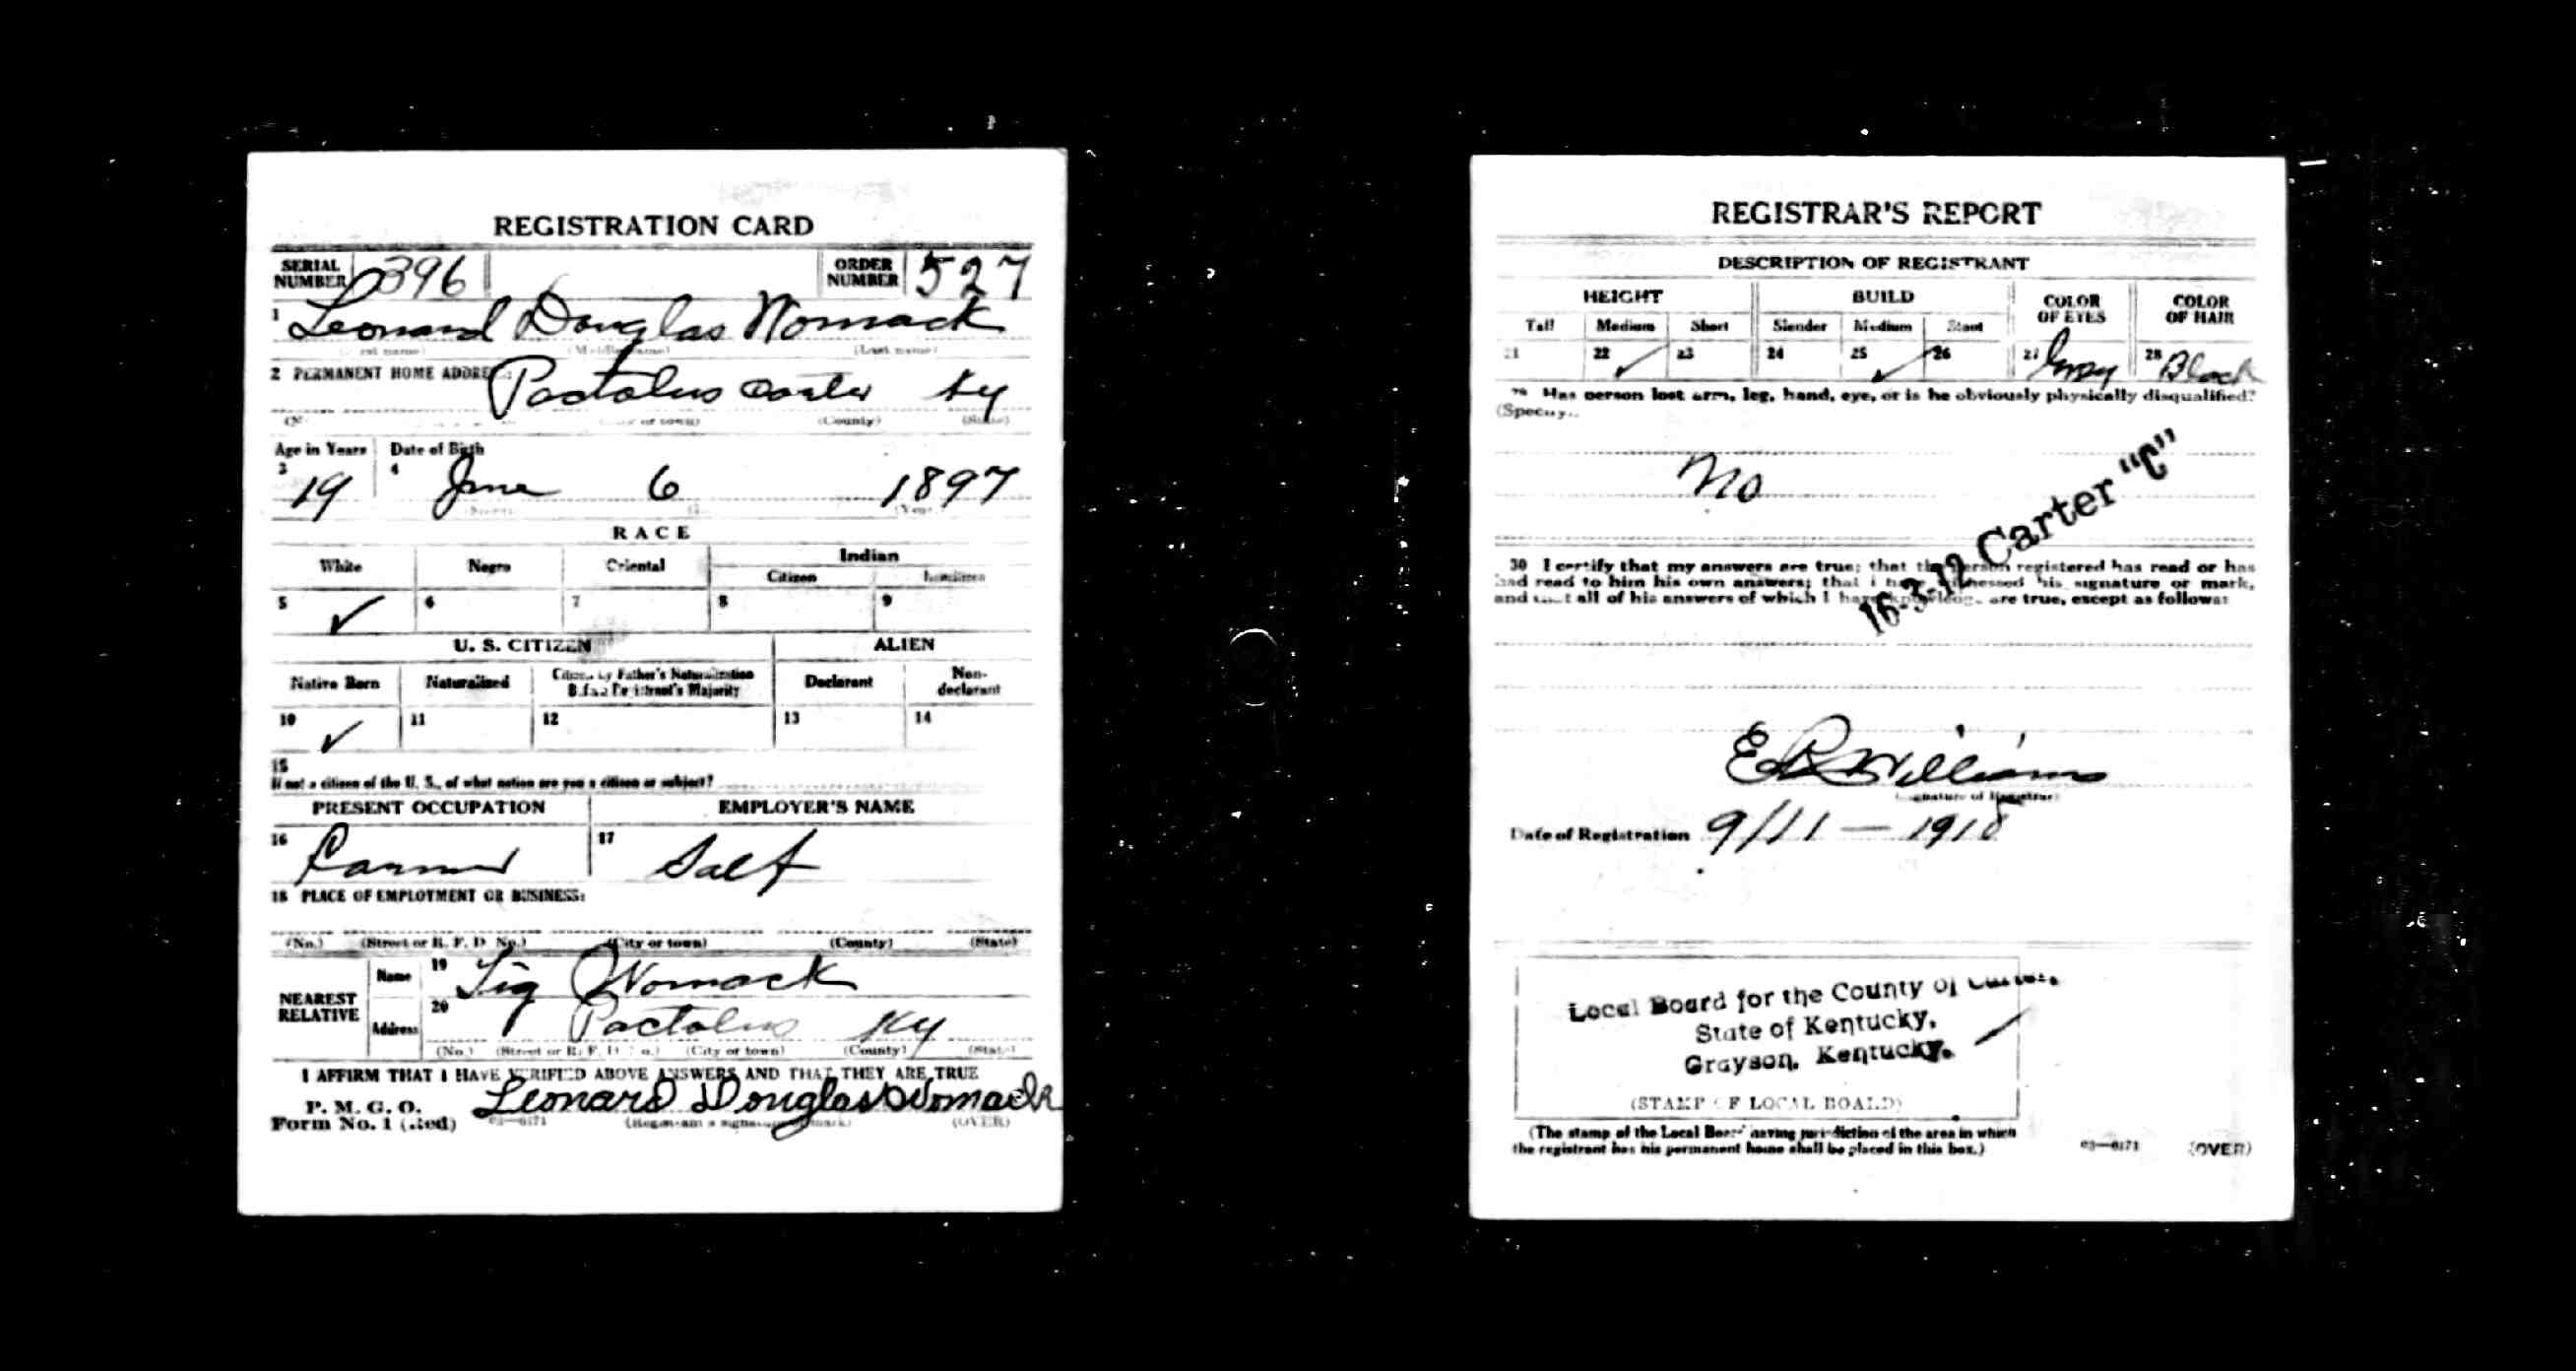 REGISTRATION CARD
SERIAL NUMBER 396 ORDER NUMBER 527
1 Leonard Douglas Womack
(Middle name) (Last name)
2 PERMANENT HOME ADDRESS:
Pactolus Carter Ky
(County) (State)
Age in Years Date of Birth
3 19 4 June 6 1897
RACE
White Negro Oriental Indian
Citizen Noncitizen
5 ✓ 6 7 8 9
U. S. CITIZEN ALIEN
Native Born Naturalized Citizen by Father's Naturalization Before Registrant's Majority Declarant Non-declarant
10 ✓ 11 12 13 14
15
If not a citizen of the U. S., of what nation are you a citizen or subject?
PRESENT OCCUPATION EMPLOYER'S NAME
16 Farmer 17 Self
18 PLACE OF EMPLOYMENT OR BUSINESS:
(No.) (Street or R. F. D. No.) (City or town) (County) (State)
NEAREST RELATIVE Name 19 Womack
Address 20 Pactolus Ky
(No.) (Street or R. F. D. No.) (City or town) (County) (State)
I AFFIRM THAT I HAVE VERIFIED ABOVE ANSWERS AND THAT THEY ARE TRUE
P. M. G. O.
Form No. 1 (Red) 03—6171 Leonard Douglas Womack
(Registrant's signature or mark) (OVER)
REGISTRAR'S REPORT
DESCRIPTION OF REGISTRANT
HEIGHT BUILD COLOR OF EYES COLOR OF HAIR
Tall Medium Short Slender Medium Stout
21 22 ✓ 23 24 25 ✓ 26 27 Gray 28 Black
29 Has person lost arm, leg, hand, eye, or is he obviously physically disqualified?
(Specify.)
No
16-3-12 Carter "C"
30 I certify that my answers are true; that the person registered has read or has
had read to him his own answers; that I have witnessed his signature or mark,
and that all of his answers of which I have knowledge are true, except as follows:
Williams
(Signature of Registrar)
Date of Registration 9/11—1918
Local Board for the County of Carter,
State of Kentucky,
Grayson, Kentucky.
(STAMP OF LOCAL BOARD)
(The stamp of the Local Board having jurisdiction of the area in which
the registrant has his permanent home shall be placed in this box.)
03—6171 (OVER)